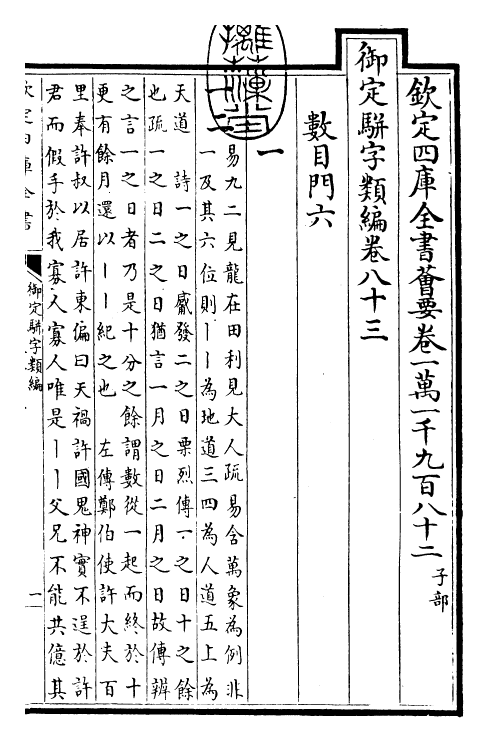 欽定四庫全書薈要卷一萬一千九百八十二 子部
御定駢字類編卷八十三
數目門六
一
一二
易九二見龍在田利見大人疏易含萬象為例非
一及其六位則丨丨為地道三四為人道五上為
天道 詩一之日觱發二之日栗烈傳一之日十之餘
也疏一之日二之日猶言一月之日二月之日故傳辨
之言一之日者乃是十分之餘謂數從一起而終於十
更有餘月還以丨丨紀之也 左傳鄭伯使許大夫百
里奉許叔以居許東偏曰天禍許國鬼神實不逞於許
君而假手於我寡人寡人唯是丨丨父兄不能共億其
欽定四庫全書
御定駢字類編
一
摛藻堂